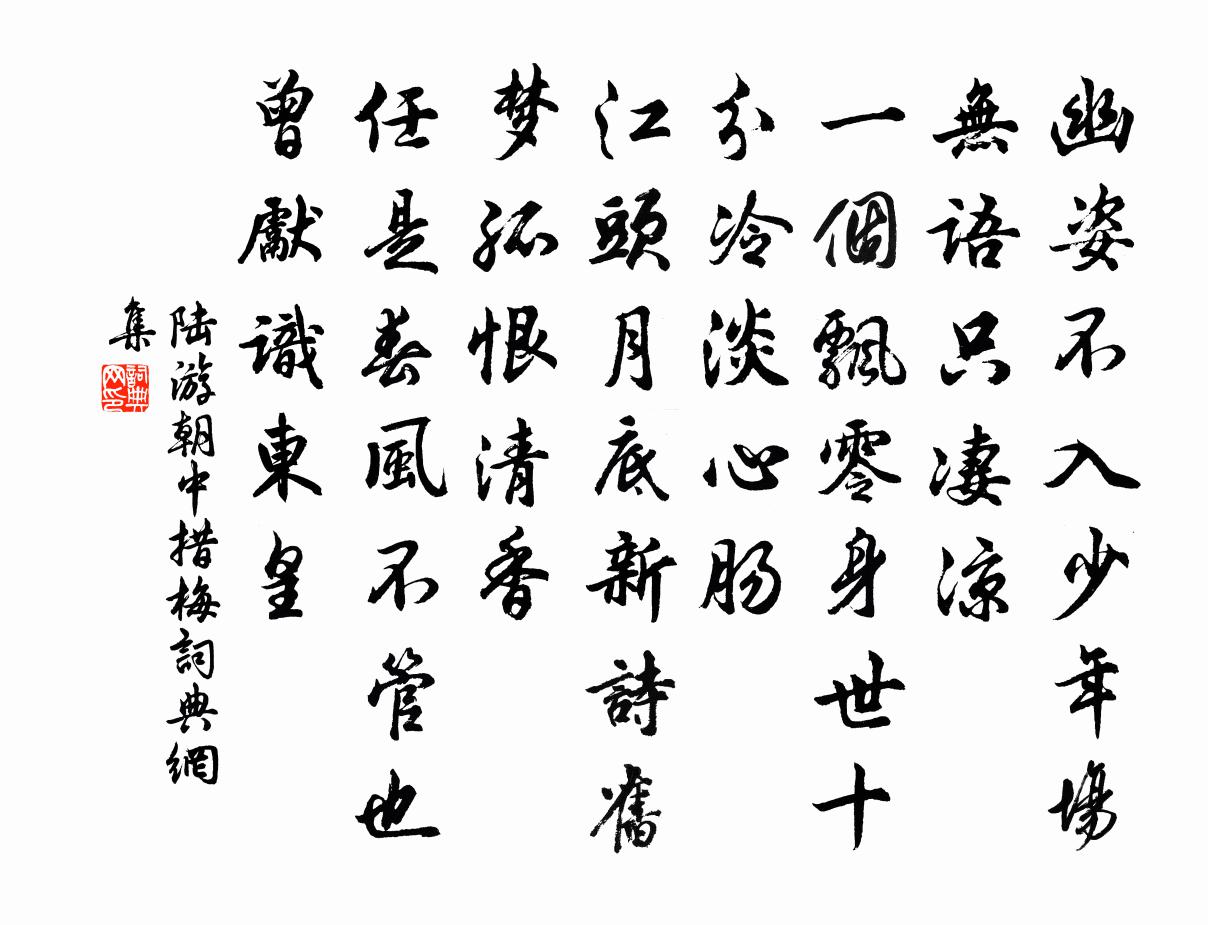 幽姿不入少年場
無語只凄涼
一個飄零身世十
分冷淡心肠
江頭月底新詩舊
梦孤恨清香
任是春風不管也
曾獻識東皇
陆游朝中措梅詞典網
集
詞典网印